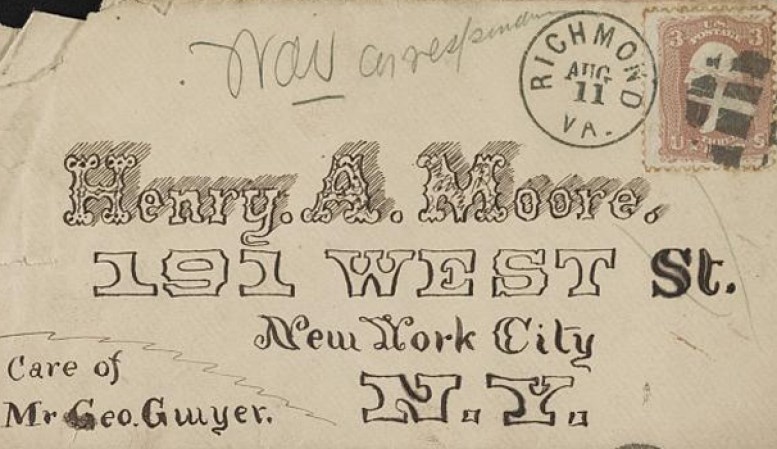 War correspondence
RICHMOND
AUG
11
VA.
3 U.S. 3
POSTAGE
U S
Henry. A. Moore.
191 WEST St.
New York City
N.Y.
Care of
Mr Geo. Gwyer.